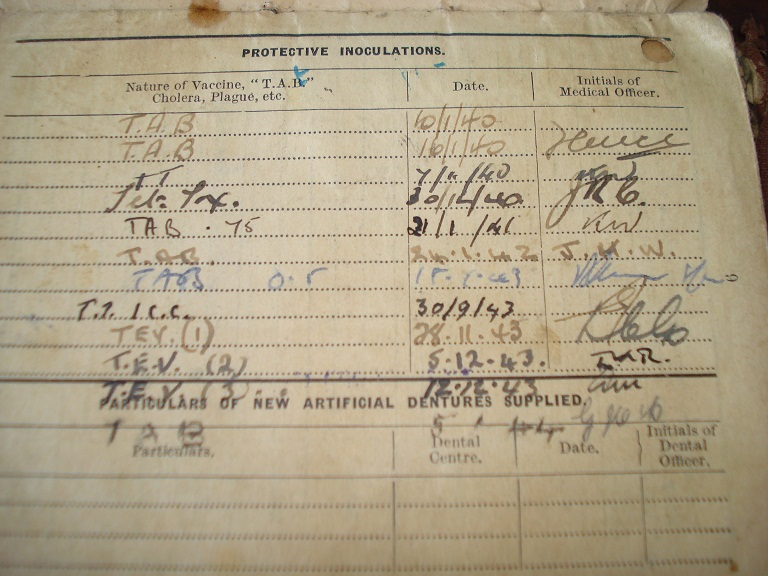 PROTECTIVE INOCULATIONS.
Nature of Vaccine, "T.A.B." Cholera, Plague, etc. Date. Initials of Medical Officer.
T.A.B 10/1/40
T.A.B 16/1/40
TT 7/11/40
Tet. Tox. 30/12/40
TAB .75 21/1/41
T.A.B. 24.1.42 J.H.W.
TAB 0.5 43
T.T. 1 C.C. 30/9/43
TEV.(1) 28.11.43
T.E.V. (2) 5.12.43.
T.E.V. (3) 12.12.43
PARTICULARS OF NEW ARTIFICIAL DENTURES SUPPLIED.
T A B 5 44
Particulars. Dental Centre. Date. Initials of Dental Officer.